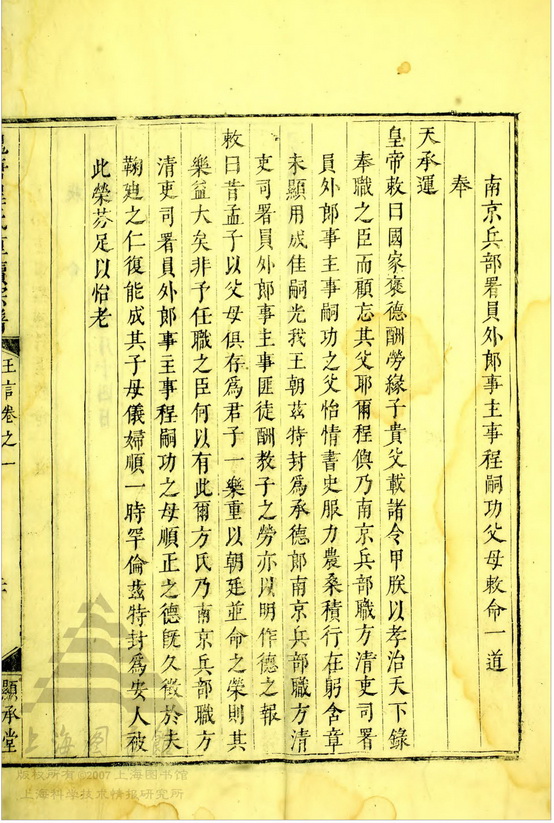 南京兵部署員外郎事主事程嗣功父母敕命一道
奉
天承運
皇帝敕曰國家褒德酬勞緣子貴父載諸令甲朕以孝治天下錄
奉職之臣而顧忘其父耶爾程㒜乃南京兵部職方清吏司署
員外郎事主事嗣功之父怡情書史服力農桑積行在躬含章
未顯用成佳嗣光我王朝茲特封為承德郎南京兵部職方清
吏司署員外郎事主事匪徒酬教子之勞亦以明作德之報
敕曰昔孟子以父母俱存為君子一樂重以朝廷並命之榮則其
樂益大矣非予任職之臣何以有此爾方氏乃南京兵部職方
清吏司署員外郎事主事程嗣功之母順正之德既久徵於夫
鞠廸之仁復能成其子母儀婦順一時罕倫茲特封為安人被
此榮芬足以怡老
王言卷之一
顯承堂
上海图
版权所有©2007上海图书馆
上海科学技术情报研究所